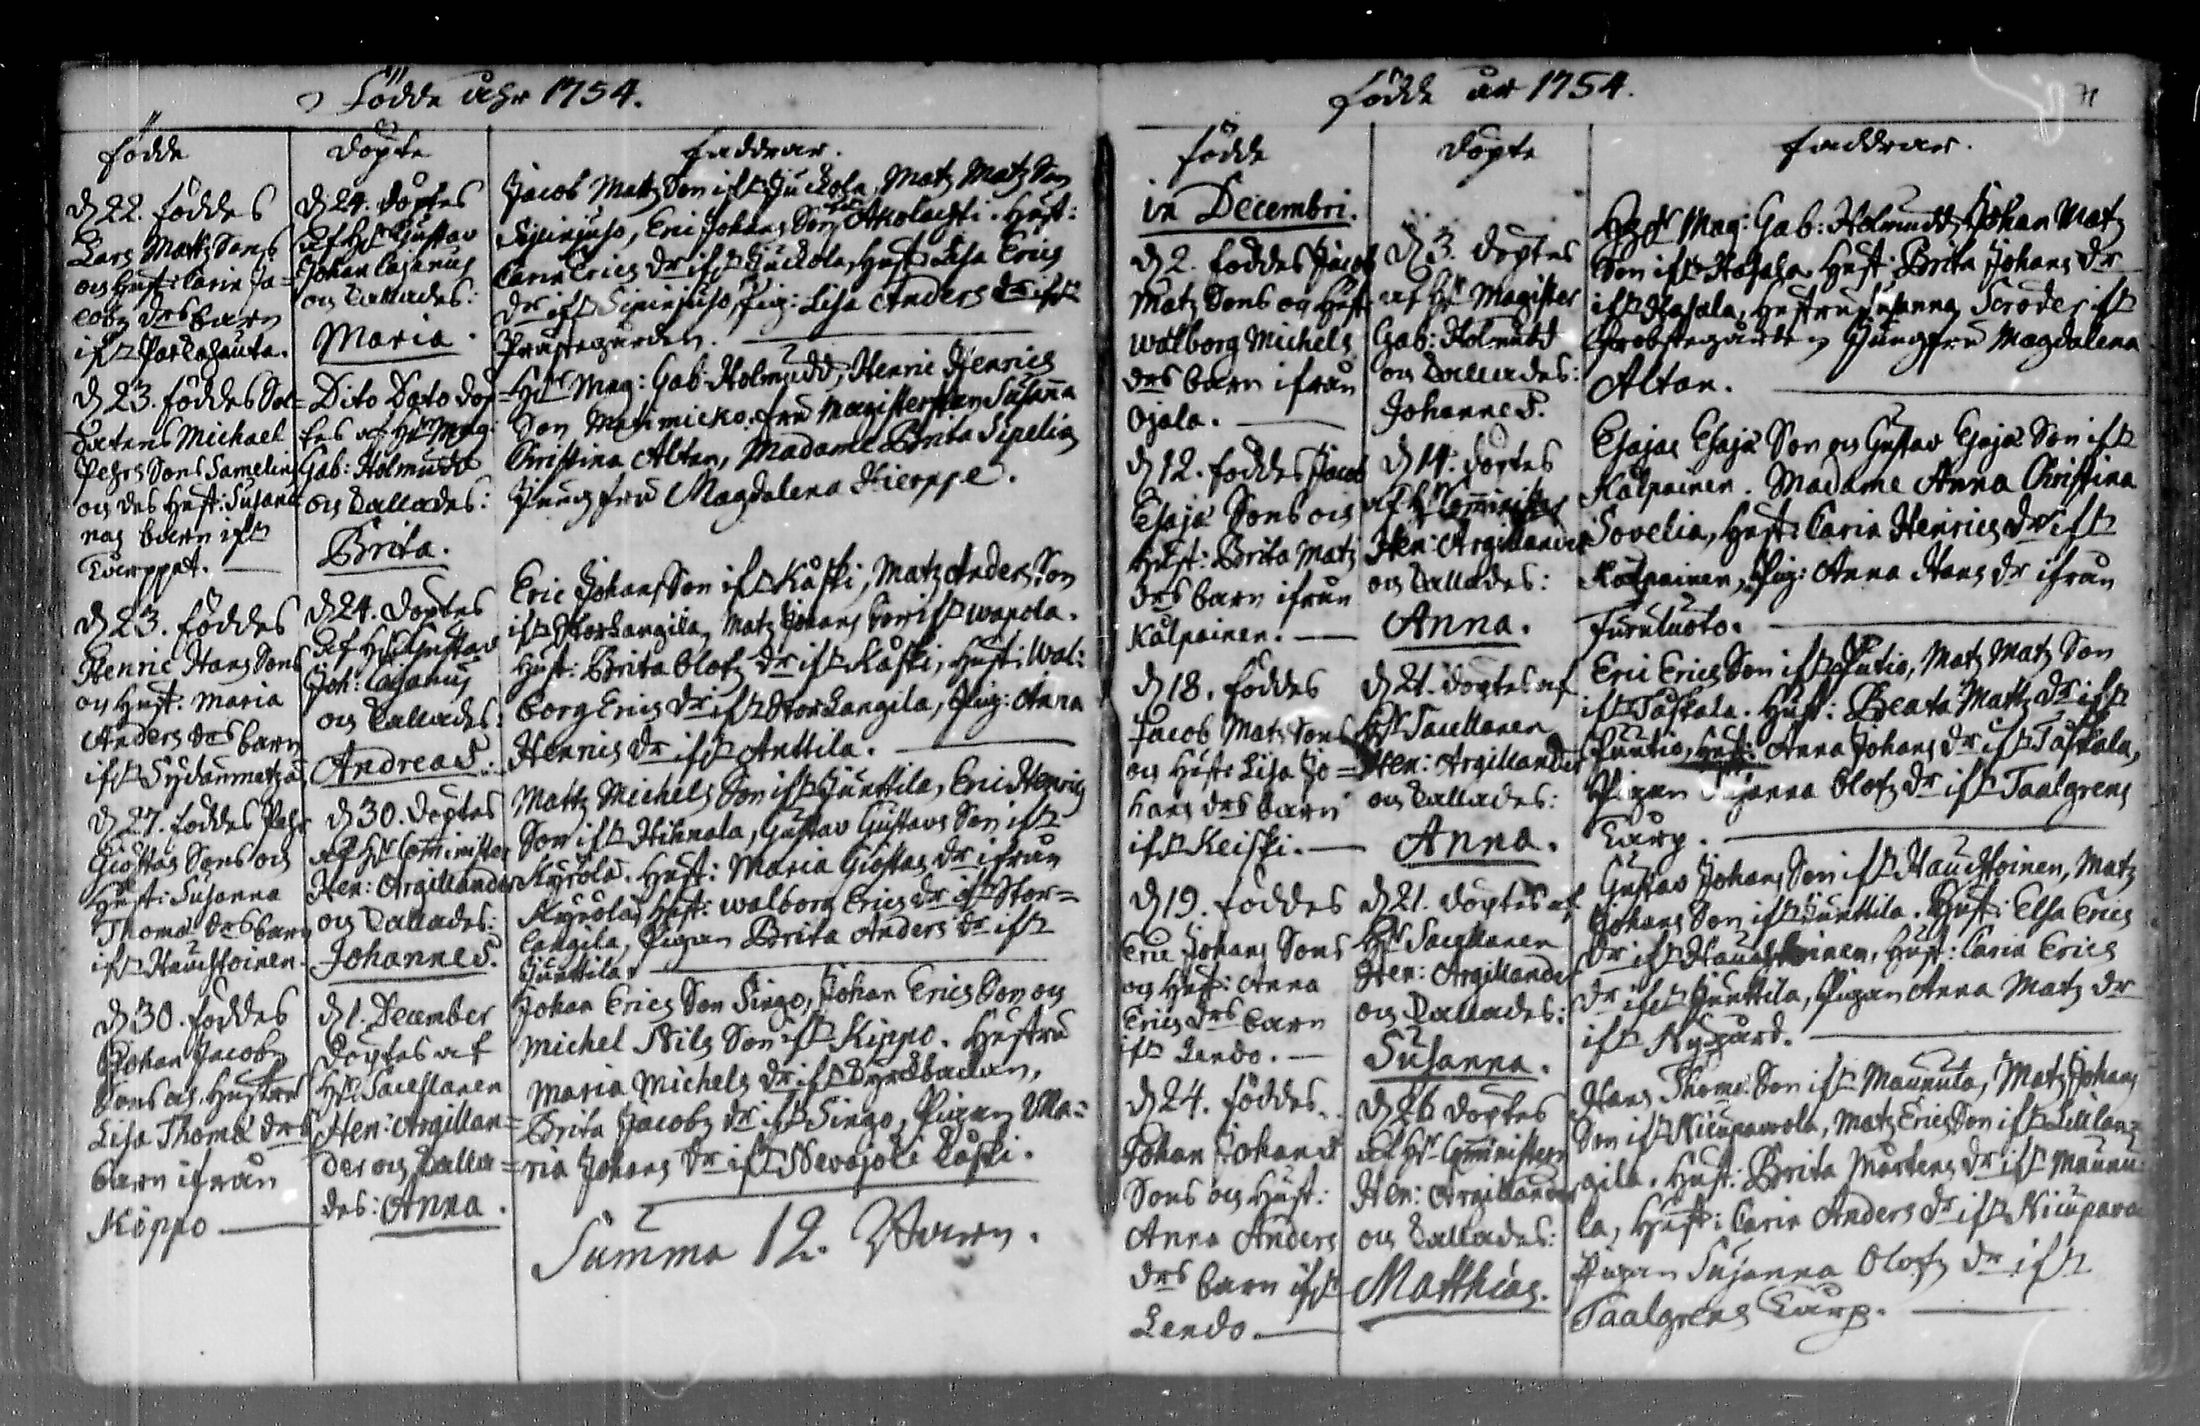 Födde åhr 1754.
Födde
Döpte
Faddrar.
d 22. föddes
Lars Matts Sons
och Hust: Carin Ja=
cobs drs barn
ifr Parlahauta.
d 24. döptes
af Hr Gustav
Johan Cajanus
och kallades:
Maria.
Jacob Matts Son ifr Juckola, Matz Matz Son
Sipinjuso, Eric Johans Son Akolachti. Hust:
Carin Erics dr ifr Juckola, Hust: Lisa Erics
dr ifr Sipinjuso, Pig: Lisa Anders dr ifr
Prästegården.
d 23. föddes Sol=
datens Michael
Pehrs Sons Samelin
och des Hust: Susan
nas barn ifr
Dito Dato döp=
tes af Hr Mag:
Gab: Holmudd
och kallades:
Brita.
Hr Mag: Gab: Holmudd, Henric Henrics
Son Matimicko. fru Magisterskan Susanna
Christina Altan, Madame Brita Sipelia
Jungfru Magdalena Kierppe.
d 23. föddes
Henric Hans Sons
och Hust: Maria
Anders drs barn
ifr Sydänmetzä
d 24. döptes
Af Hr Gustav
Joh: Cajanus
och kallades:
Andreas.
Eric Johans Son ifr Kåski, Matz Anders Son
ifr Storlangila, Matz Johans Son ifr Wapola.
Hust: Brita Olofs dr ifr Kåski, Hust: Wal=
borg Erics dr ifr Storlangila, Pig: Anna
Henrics dr ifr Anttila.
d 27. föddes Pehr
Giöstas Sons och
Hust: Susanna
Thomæ drs barn
ifr Hauchtoinen.
d 30. döptes
af Hr Comminister
Hen: Argillander
och kallades:
Johannes.
Matts Michels Son ifr Junttila, Eric Henrics
Son ifr Hihnala, Gustav Gustavs Son ifr
Kyrölä. Hust: Maria Giöstas dr ifrån
Kyrölä, Hust: Walborg Erics dr ifr Stor=
langila, Pigan Brita Anders dr ifr
Junttila.
d 30. föddes
Johan Jacobs
Sons och Hustru
Lisa Thomæ drs
barn ifrån
Kippo
d 1. December
döptes af
Hr Sacellanen
Hen: Argillan=
der och kalla=
des: Anna.
Johan Erics Son Singo, Johan Erics Son och
Michel Nils Son ifr Kippo. Hustru
Maria Michels dr ifr Dyräbackan,
Brita Jacobs dr ifr Singo, Pigan Ma=
ria Johans dr ifr Nevajoki Kåski.
Summa 12. Barn.
Födde år 1754.
71
Födde
Döpte
Faddrar.
in Decembri.
d 2. föddes Jacob
Matz Sons och Hust
Walborg Michels
drs barn ifrån
Ojala.
d 3. döptes
af Hr Magister
Gab: Holmudd
och kallades:
Johannes.
Hr Mag: Gab: Holmudd, Johan Matz
Son ifr Hasala. Hust: Brita Johans dr
ifr Hasala, Hustru Susanna Scrode ifr
Probstegården Jungfru Magdalena
Altan.
d 12. föddes Jacob
Esajæ Sons och
Hust: Brita Matz
drs barn ifrån
Kålpainen.
d 14. döptes
af Hr Comminister
Hen: Argillander
och kallades:
Anna.
Esajas Esajæ Son och Gustav Esajæ Son ifr
Kålpainen. Madame Anna Christina
Sovelia, Hust: Carin Henrics dr ifr
Kålpainen, Pig: Anna Hans dr ifrån
Turuluoto.
d 18. föddes
Jacob Matz Sons
och Hust: Lisa Jo=
hans drs barn
ifr Keiski.
d 21. döptes af
Hr Sacellanen
Hen: Argillander
och kallades:
Anna.
Eric Erics Son ifr Puutio, Matz Matz Son
ifr Taskala. Hust: Beata Matts dr ifr
Puutio, Hust: Anna Johans dr ifr Taskala,
Pigan Susanna Olofs dr ifr Taalgrens
Torp.
d 19. föddes
Eric Johans Sons
och Hust: Anna
Erics drs barn
ifr Lendo.
d 21. döptes af
Hr Sacellanen
Hen: Argillander
och kallades:
Susanna.
Gustav Johans Son ifr Hauchtoinen, Matz
Johans Son ifr Junttila. Hust: Elsa Erics
dr ifr Hauchtoinen, Hust: Carin Erics
dr ifr Junttila, Pigan Anna Matz dr
ifr Nygård.
d 24. föddes
Johan Johans
Sons och Hust:
Anna Anders
drs barn ifr
Lendo.
d 26 döptes
af Hr Comministern
Hen: Argillander
och kallades:
Matthias.
Hans Thomæ Son ifr Maunula, Matz Johans
Son ifr Nicuparola, Matz Erics Son ifr Lillan=
gila. Hust: Brita Mårtens dr ifr Maunu=
la, Hust: Carin Anders dr ifr
Pigan Susanna Olofs dr ifr
Taalgrens Torp.